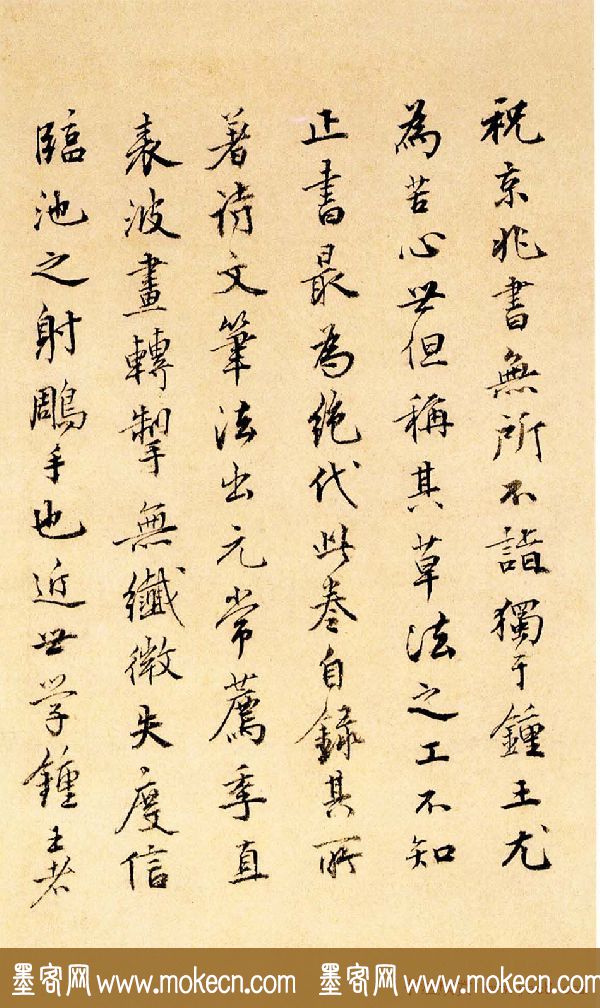 祝京兆書無所不詣獨于鍾王尤
為苦心世但稱其草法之工不知
正書最為絶代此卷自録其所
著詩文筆法出元常薦季直
表波畫轉掣無纖微失度信
臨池之射鵰手也近世学鍾王者
墨客网 www.mokecn.com 墨客网 www.mokecn.com